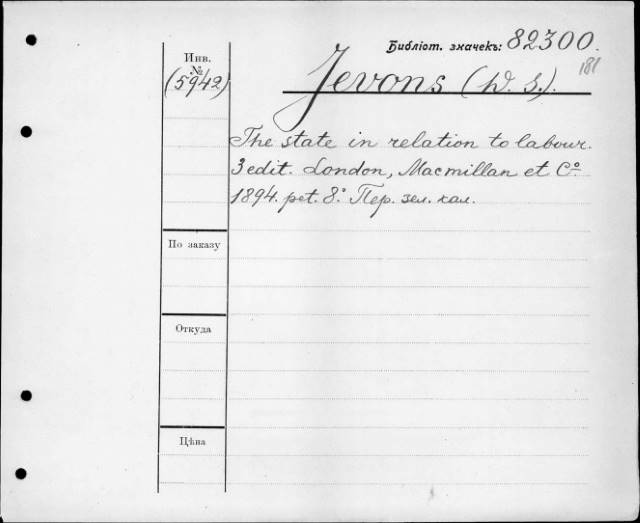 Библіот. значекъ: 82300.
181
Инв.
№
(5942)
Jevons (W. S.).
The state in relation to labour.
3 edit. London, Macmillan et Cº.
1894. pet. 8.º Пер. зел. кал.
По заказу
Откуда
Цѣна